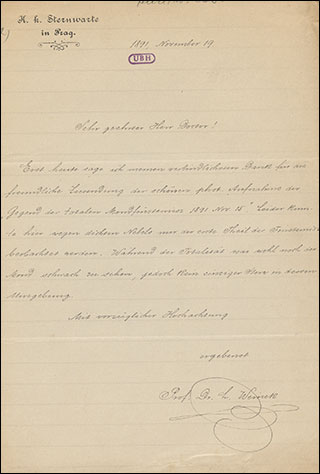 K. k. Sternwarte
in Prag.
1891 November 19.
UBH
Sehr geehrter Herr Doctor!
Erst heute sage ich meinen verbindlichsten Dank für die
freundliche Zusendung der schönen phot. Aufnahme der
Gegend der totalen Mondfinsterniss 1891 Nov 15. Leider konn-
te hier wegen dichtem Nebels nur der erste Theil der Finsterniss
beobachtet werden. Während der Totalität war wohl noch der
Mond schwach zu sehen, jedoch kein einziger Stern in dessen
Umgebung.
Mit vorzüglicher Hochachtung
ergebenst
Prof. Dr. L. Weinek